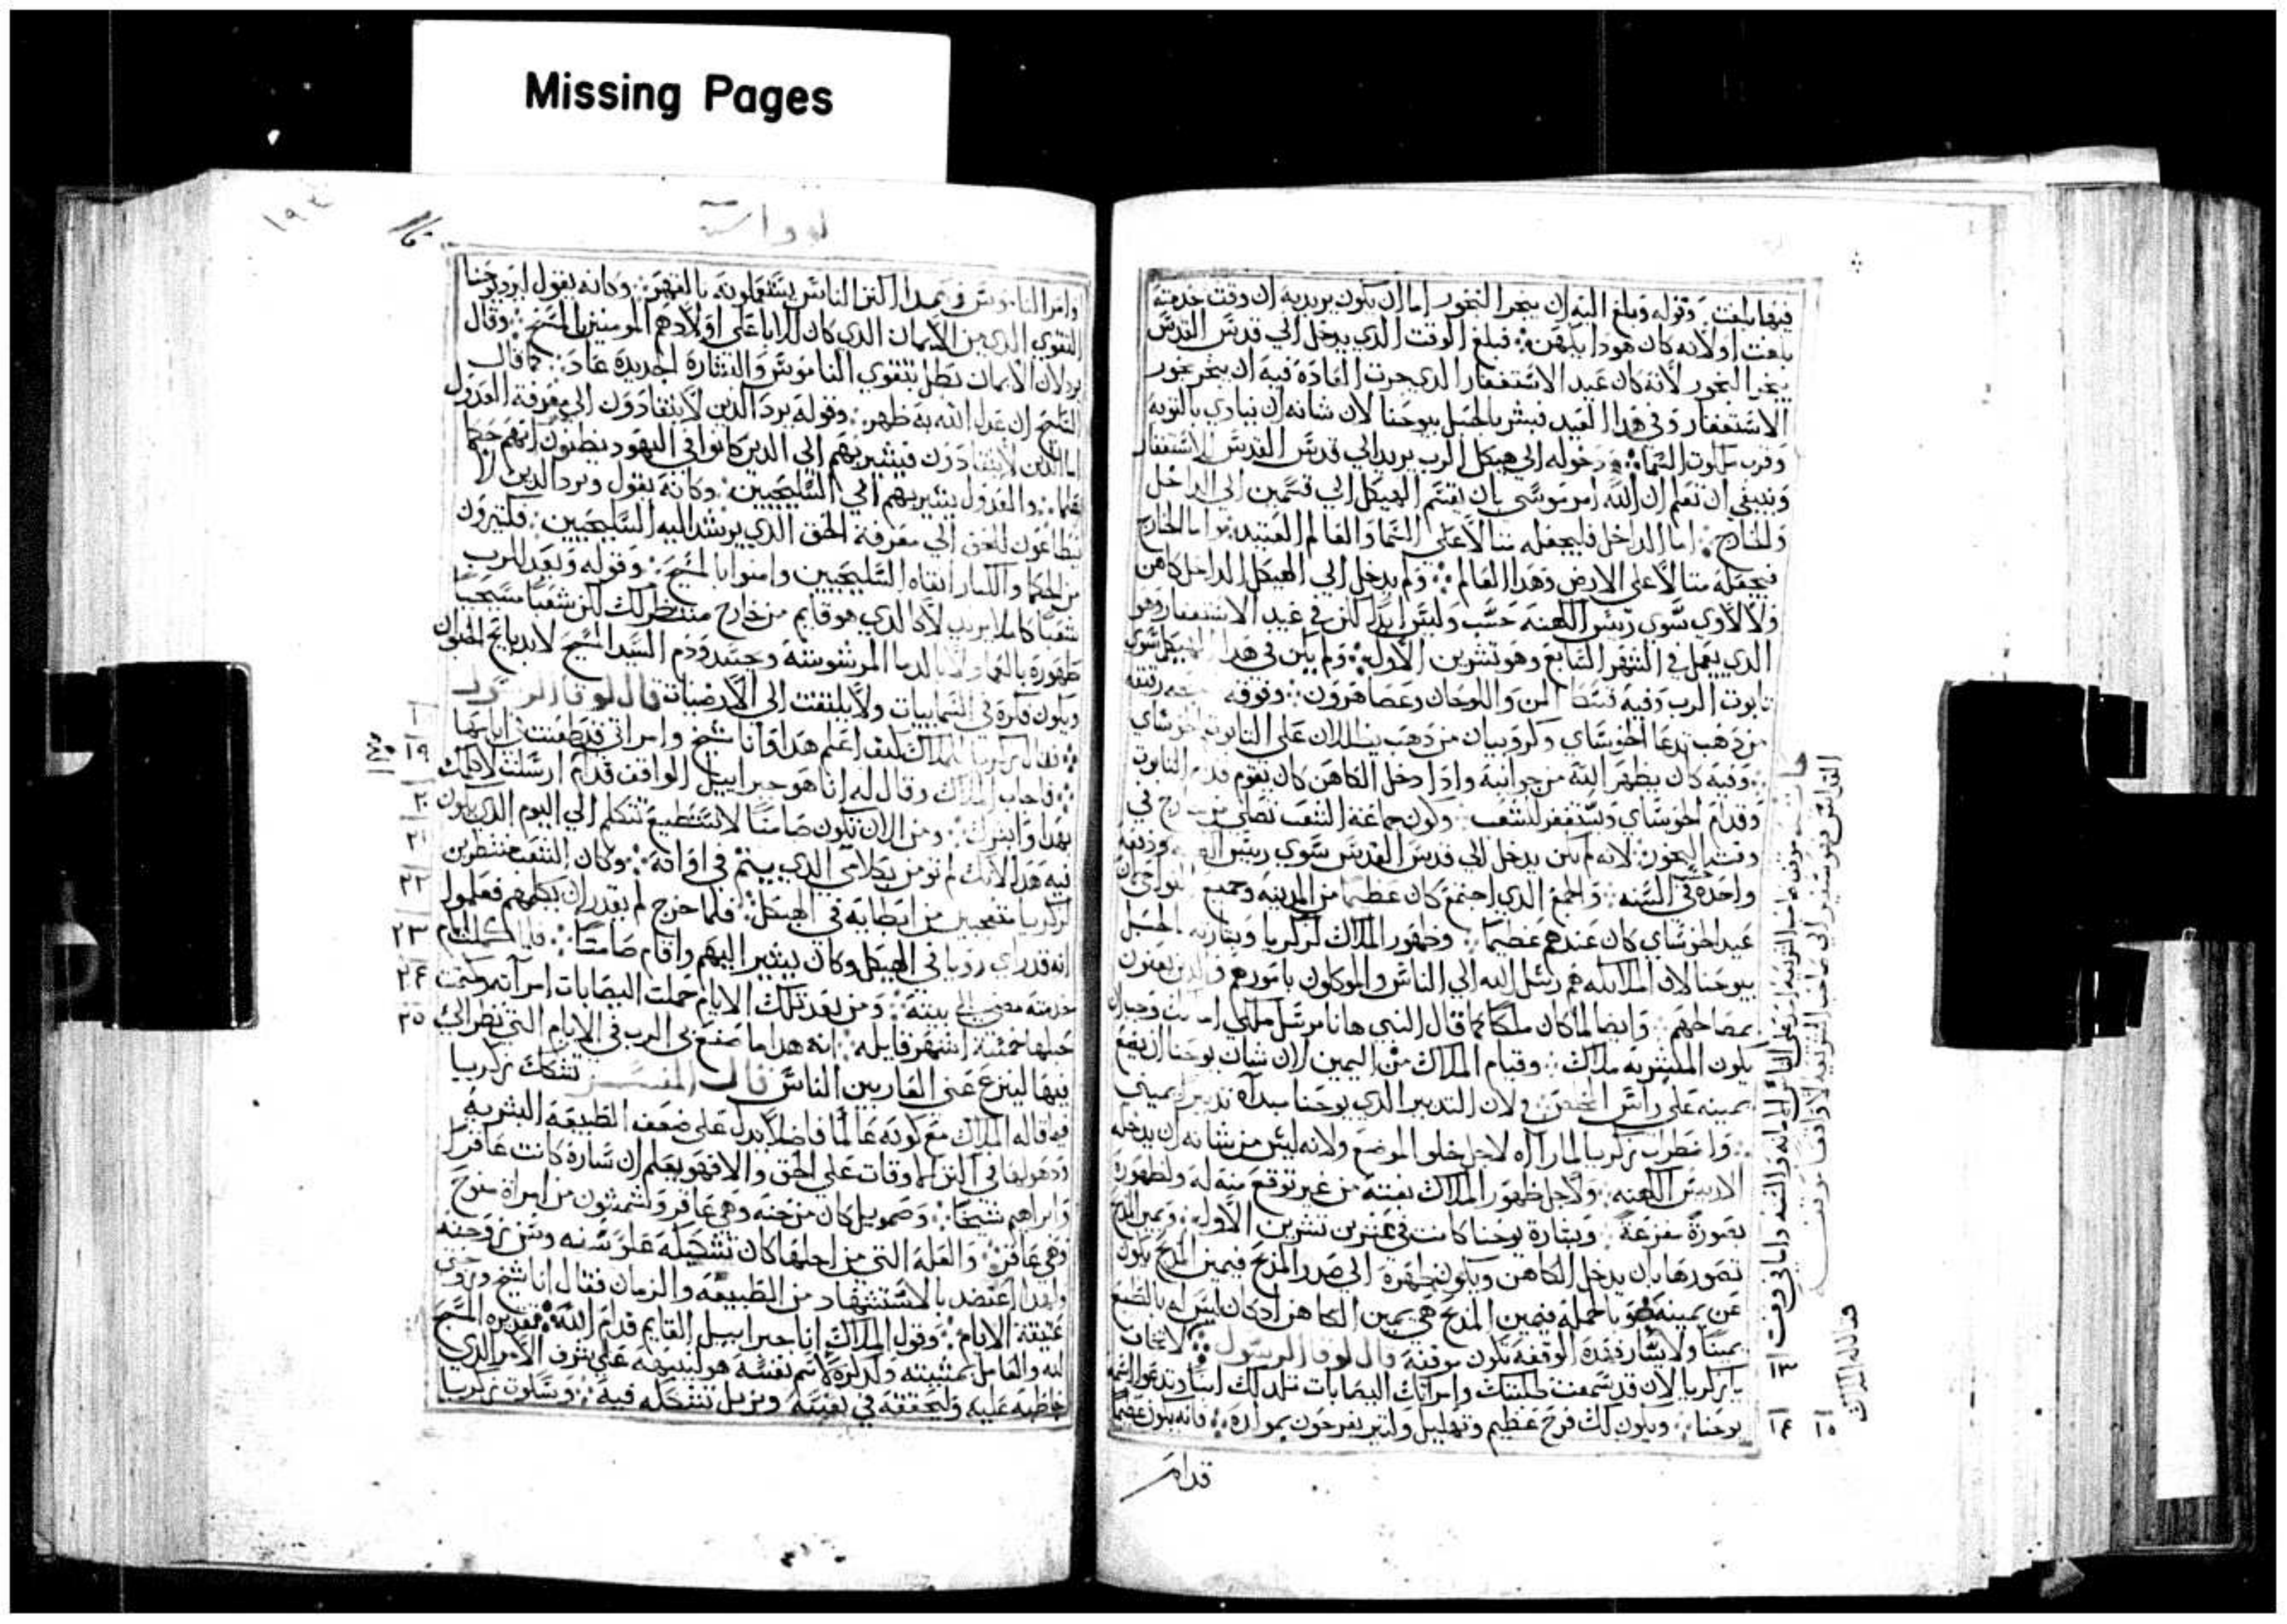 Missing Pages
فيها بلغت وقوله وبلغ اليه ان يبخر البخور اما ان يكون يريد به ان وقت خدمته
بلغت اولانه كان هودا يكهن فبلغ الوقت الذي يدخل الي قدس القدس
يبخر البخور لانه كان عيد الاستغفار الدي جرت العادة فيه ان يبخر بخور
الاستغفار وفي هدا العيد فبشر بالحبل بيوحنا لان شانه ان ينادي بالتوبه
وقرب ملكوت السما ودخوله الي هيكل الرب يريد الي قدس القدس للاستغفار
وينبغي ان نعلم ان الله امر موسي بان يقسم الهيكل الي قسمين الي الداخل
والخارج اما الداخل فليجعله مثالا علي السما والعالم العتيد واما الخارج
فيجعله مثالا علي الارض وهدا العالم ولم يدخل الي الهيكل الداخل كاهن
ولا لاوي سوي ريس الكهنه حسب وليس ابدا لكن في عيد الاستغفار وهو
الدي يعمل في الشهر السابع وهو تشرين الاول ولم يكن في هدا الهيكل سوي
تابوت الرب وفيه قسط المن واللوحان وعصا هرون وفوقه
من دهب تدعا الحوساي وكروبيان من دهب يظللان علي التابوت
وفيه كان يظهر الله من جوانبه وادا دخل الكاهن كان يقوم قدام التابوت
وقدام الحوساي ويستغفر للشعب وكون جماعة الشعب تصلي في
وقت البخور لانه لم يكن يدخل الي قدس القدس سوي ريس ودفعه
واحده في السنه والجمع الدي اجتمع كان عظيما من المدينه وجميع النواحي لان
عيد الحوساي كان عندهم عظيما وظهور الملاك لزكريا وبشارته الحبل
بيوحنا لان الملايكه هم رسل الله الي الناس والموكلون بامورهم
بمصالحهم وايضا لما كان ملكا كما قال النبي هانا مرسل ملكي
يكون المبشر به ملاك وقيام الملاك من اليمين لان شان يوحنا ان يضع
يمينه علي راس المخلص ولان التدبير الدي يوحنا مبداه تدبير يميني
واضطراب زكريا لما راه لاجل خلو الموضع ولانه ليس من شانه ان يدخله
الا ريس الكهنه ولاجل ظهور الملاك بغتة من غير توقع منه له ولظهوره
بصورة مفزعة وبشارة يوحنا كانت في عشرين تشرين الاول ويمين المدبح
تصورها بان يدخل الكاهن ويكون ظهره الي صدر المدبح فيمين المدبح يكون
عن يمينه وبالجملة فيمين المدبح هي يمين الكاهن اد كان ليس له بالطبع
يمينا ولا يسار فقدر الوقفه تكون موقفه قال لوقا الرسول لا تخاف
١٣ يا زكريا لان قد سمعت طلبتك وامراتك اليصابات تلد لك ابنا وتدعوا اسمه
١٤ ١٥ يوحنا ويكون لك فرح عظيم وتهليل وكثير يفرحون بمولده فانه يكون عظيما
قدام
وامر الناموس في عمدا اكثر الناس يستعملونه بالقهر وكانه يقول ان يوحنا
التقوي الدي من الايمان الدي كان للابا علي اولادهم المومنين بالمسيح وقال
يرد لان الايمان بطل بتقوي الناموس والبشارة الجديدة عاد كما قال
السليح ان عدل الله به ظهر وقوله يرد الدين لا ينقادون الي معرفة العدول
اما الدين لا ينقادون فيشير بهم الي الدين كانوا في اليهود يظنون انهم حكما
علما والعدول يشير بهم الي السليحيين وكانه يقول ويرد الدين لا
ينطاعون للحق الي معرفة الحق الدي يرشد اليه السليحيين فكثيرون
من الحكما والكبار انقاه السليحيين وامنوا بالمسيح وقوله ويعد للرب
شعبا كاملا يريد لا كالدي هو قايم من خارج منتظر لك لكن شعبا مسيحيا
طهوره بالعماد لا بالدما المرشوشه وجسد ودم السيد المسيح لا بدبايح الحيوان
ويكون فكره في السماييات ولا يلتفت الي الارضيات قال لوقا الرسول
١٩ فقال زكريا للملاك كيف اعلم هدا وانا شيخ وامراتي قد طعنت في ايامها
فاجاب الملاك وقال له انا هو جبراييل الواقف قدام ارسلت لاكلمك
٢٠ بهدا وابشرك ومن الان تكون صامتا لا تستطيع تتكلم الي اليوم الدي يكون
٢١ فيه هدا لانك لم تومن بكلامي الدي يتم في اوانه وكان الشعب منتظرين
٢٢ لزكريا متعجبين من ابطايه في الهيكل فلما خرج لم يقدر ان يكلمهم فعلموا
٢٣ انه قد راي رويا في الهيكل وكان يشير اليهم واقام صامتا فلما كملت ايام
٢٤ خدمته مضي الي بيته ومن بعد تلك الايام حملت اليصابات امراته وكتمت
٢٥ حبلها خمسة اشهر قايله انه هدا ما صنع بي الرب في الايام التي نظر الي
فيها لينزع عني العار بين الناس قال المفسر تشكك زكريا
فيما قاله الملاك مع كونه عالما فاضلا يدل علي ضعف الطبيعه البشريه
ودهولها في اكثر الاوقات علي الحق والا فهو يعلم ان سارة كانت عاقرا
وابراهيم شيخا وصمويل كان من حنه وهي عاقر وشمشون من امراة منوح
وهي عاقر والعله التي من اجلها كان تشككه علو سنه وسن زوجته
ولهدا اعتضد بالاستشهاد من الطبيعه والزمان فقال انا شيخ وزوجتي
عتيقة الايام وقول الملاك انا جبراييل القايم قدام الله تقديره المسبح
لله والعامل بمشيته ودكره لاسم نفسه هو لينبهه علي شرف الامر الدي
خاطبه عليه وليحققه في نفسه ويزيل تشككه فيه وسكوت زكريا